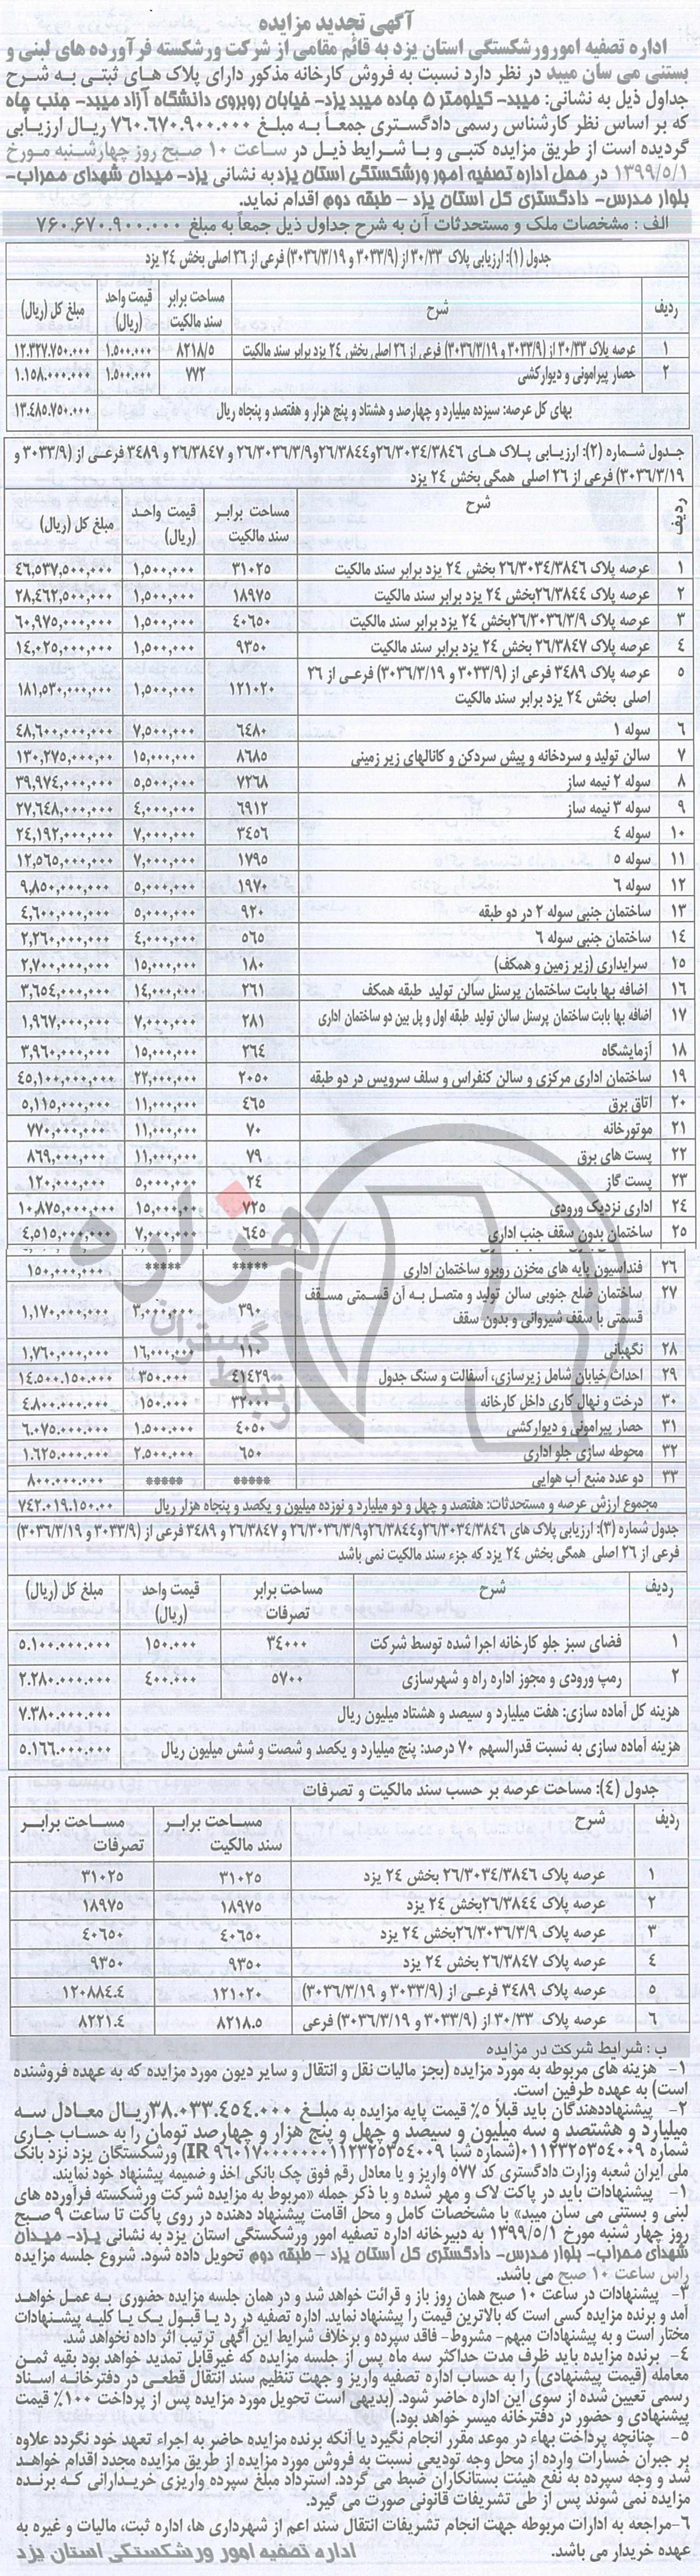 آگهی تجدید مزایده
اداره تصفیه امورورشکستگی استان یزد به قائم مقامی از شرکت ورشکسته فرآورده های لبنی و
بستنی می سان میبد در نظر دارد نسبت به فروش کارخانه مذکور دارای پلاک های ثبتی به شرح
جداول ذیل به نشانی: میبد- کیلومتر ۵ جاده میبد یزد- خیابان روبروی دانشگاه آزاد میبد- جنب چاه
که بر اساس نظر کارشناس رسمی دادگستری جمعاً به مبلغ ۷۶۰.۶۷۰.۹۰۰.۰۰۰ ریال ارزیابی
گردیده است از طریق مزایده کتبی و با شرایط ذیل در ساعت ۱۰ صبح روز چهارشنبه مورخ
۱۳۹۹/۵/۱ در محل اداره تصفیه امور ورشکستگی استان یزد به نشانی یزد- میدان شهدای محراب-
بلوار مدرس- دادگستری کل استان یزد – طبقه دوم اقدام نماید.
الف : مشخصات ملک و مستحدثات آن به شرح جداول ذیل جمعاً به مبلغ ۷۶۰.۶۷۰.۹۰۰.۰۰۰
جدول (۱): ارزیابی پلاک ۳۰/۳۳ از (۳۰۳۳/۹ و ۳۰۳۶/۳/۱۹) فرعی از ۲۶ اصلی بخش ۲۴ یزد
ردیف شرح مساحت برابر سند مالکیت قیمت واحد (ریال) مبلغ کل (ریال)
۱ عرصه پلاک ۳۰/۳۳ از (۳۰۳۳/۹ و ۳۰۳۶/۳/۱۹) فرعی از ۲۶ اصلی بخش ۲۴ یزد برابر سند مالکیت ۸۲۱۸/۵ ۱.۵۰۰.۰۰۰ ۱۲.۳۲۷.۷۵۰.۰۰۰
۲ حصار پیرامونی و دیوارکشی ۷۷۲ ۱.۵۰۰.۰۰۰ ۱.۱۵۸.۰۰۰.۰۰۰
بهای کل عرصه: سیزده میلیارد و چهارصد و هشتاد و پنج هزار و هفتصد و پنجاه ریال ۱۳.۴۸۵.۷۵۰.۰۰۰
جدول شماره (۲): ارزیابی پلاک های ۲۶/۳۰۳۴/۳۸۴۶و۲۶/۳۸۴۴و۲۶/۳۰۳۶/۳/۹ و ۲۶/۳۸۴۷ و ۳۴۸۹ فرعی از (۳۰۳۳/۹ و
۳۰۳۶/۳/۱۹) فرعی از ۲۶ اصلی همگی بخش ۲۴ یزد
ردیف شرح مساحت برابر سند مالکیت قیمت واحد (ریال) مبلغ کل (ریال)
۱ عرصه پلاک ۲۶/۳۰۳۴/۳۸۴۶ بخش ۲۴ یزد برابر سند مالکیت ۳۱۰۲۵ ۱,۵۰۰,۰۰۰ ۴۶,۵۳۷,۵۰۰,۰۰۰
۲ عرصه پلاک ۲۶/۳۸۴۴بخش ۲۴ یزد برابر سند مالکیت ۱۸۹۷۵ ۱,۵۰۰,۰۰۰ ۲۸,۴۶۲,۵۰۰,۰۰۰
۳ عرصه پلاک ۲۶/۳۰۳۶/۳/۹بخش ۲۴ یزد برابر سند مالکیت ۴۰۶۵۰ ۱,۵۰۰,۰۰۰ ۶۰,۹۷۵,۰۰۰,۰۰۰
۴ عرصه پلاک ۲۶/۳۸۴۷ بخش ۲۴ یزد برابر سند مالکیت ۹۳۵۰ ۱,۵۰۰,۰۰۰ ۱۴,۰۲۵,۰۰۰,۰۰۰
۵ عرصه پلاک ۳۴۸۹ فرعی از (۳۰۳۳/۹ و ۳۰۳۶/۳/۱۹) فرعی از ۲۶
اصلی بخش ۲۴ یزد برابر سند مالکیت ۱۲۱۰۲۰ ۱,۵۰۰,۰۰۰ ۱۸۱,۵۳۰,۰۰۰,۰۰۰
۶ سوله ۱ ۶۴۸۰ ۷,۵۰۰,۰۰۰ ۴۸,۶۰۰,۰۰۰,۰۰۰
۷ سالن تولید و سردخانه و پیش سردکن و کانالهای زیر زمینی ۸۶۸۵ ۱۵,۰۰۰,۰۰۰ ۱۳۰,۲۷۵,۰۰۰,۰۰
۸ سوله ۲ نیمه ساز ۷۲۶۸ ۵,۵۰۰,۰۰۰ ۳۹,۹۷۴,۰۰۰,۰۰۰
۹ سوله ۳ نیمه ساز ۶۹۱۲ ۴,۰۰۰,۰۰۰ ۲۷,۶۴۸,۰۰۰,۰۰۰
۱۰ سوله ۴ ۳۴۵۶ ۷,۰۰۰,۰۰۰ ۲۴,۱۹۲,۰۰۰,۰۰۰
۱۱ سوله ۵ ۱۷۹۵ ۷,۰۰۰,۰۰۰ ۱۲,۵۶۵,۰۰۰,۰۰۰
۱۲ سوله ۶ ۱۹۷۰ ۵,۰۰۰,۰۰۰ ۹,۸۵۰,۰۰۰,۰۰۰
۱۳ ساختمان جنبی سوله ۲ در دو طبقه ۹۲۰ ۵,۰۰۰,۰۰۰ ۴,۶۰۰,۰۰۰,۰۰۰
۱۴ ساختمان جنبی سوله ۶ ۵۶۵ ۴,۰۰۰,۰۰۰ ۲,۲۶۰,۰۰۰,۰۰۰
۱۵ سرایداری (زیر زمین و همکف) ۱۸۰ ۱۵,۰۰۰,۰۰۰ ۲,۷۰۰,۰۰۰,۰۰۰
۱۶ اضافه بها بابت ساختمان پرسنل سالن تولید طبقه همکف ۲۶۱ ۱۴,۰۰۰,۰۰۰ ۳,۶۵۴,۰۰۰,۰۰۰
۱۷ اضافه بها بابت ساختمان پرسنل سالن تولید طبقه اول و پل بین دو ساختمان اداری ۲۸۱ ۷,۰۰۰,۰۰۰ ۱,۹۶۷,۰۰۰,۰۰۰
۱۸ آزمایشگاه ۲۶۴ ۱۵,۰۰۰,۰۰۰ ۳,۹۶۰,۰۰۰,۰۰۰
۱۹ ساختمان اداری مرکزی و سالن کنفراس و سلف سرویس در دو طبقه ۲۰۵۰ ۲۲,۰۰۰,۰۰۰ ۴۵,۱۰۰,۰۰۰,۰۰۰
۲۰ اتاق برق ۴۶۵ ۱۱,۰۰۰,۰۰۰ ۵,۱۱۵,۰۰۰,۰۰۰
۲۱ موتورخانه ۷۰ ۱۱,۰۰۰,۰۰۰ ۷۷۰,۰۰۰,۰۰۰
۲۲ پست های برق ۷۹ ۱۱,۰۰۰,۰۰۰ ۸۶۹,۰۰۰,۰۰۰
۲۳ پست گاز ۲۴ ۵,۰۰۰,۰۰۰ ۱۲۰,۰۰۰,۰۰۰
۲۴ اداری نزدیک ورودی ۷۲۵ ۱۵,۰۰۰,۰۰۰ ۱۰,۸۷۵,۰۰۰,۰۰۰
۲۵ ساختمان بدون سقف جنب اداری ۶۴۵ ۷,۰۰۰,۰۰۰ ۴,۵۱۵,۰۰۰,۰۰۰
۲۶ فنداسیون پایه های مخزن روبرو ساختمان اداری ***** ***** ۱۵۰,۰۰۰,۰۰۰
۲۷ ساختمان ضلع جنوبی سالن تولید و متصل به آن قسمتی مسقف
قسمتی با سقف شیروانی و بدون سقف ۳۹۰ ۳,۰۰۰,۰۰۰ ۱,۱۷۰,۰۰۰,۰۰۰
۲۸ نگهبانی ۱۱۰ ۱۶,۰۰۰,۰۰۰ ۱,۷۶۰,۰۰۰,۰۰۰
۲۹ احداث خیابان شامل زیرسازی، آسفالت و سنگ جدول ۴۱۴۲۹ ۳۵۰.۰۰۰ ۱۴.۵۰۰.۱۵۰.۰۰۰
۳۰ درخت و نهال کاری داخل کارخانه ۳۲۰۰۰ ۱۵۰.۰۰۰ ۴.۸۰۰.۰۰۰.۰۰۰
۳۱ حصار پیرامونی و دیوارکشی ۴۰۵۰ ۱.۵۰۰.۰۰۰ ۶.۰۷۵.۰۰۰.۰۰۰
۳۲ محوطه سازی جلو اداری ۶۵۰ ۲.۵۰۰.۰۰۰ ۱.۶۲۵.۰۰۰.۰۰۰
۳۳ دو عدد منبع آب هوایی ***** ***** ۸۰۰.۰۰۰.۰۰۰
مجموع ارزش عرصه و مستحدثات: هفتصد و چهل و دو میلیارد و نوزده میلیون و یکصد و پنجاه هزار ریال ۷۴۲.۰۱۹.۱۵۰.۰۰
جدول شماره (۳): ارزیابی پلاک های ۲۶/۳۰۳۴/۳۸۴۶و۲۶/۳۸۴۴و۲۶/۳۰۳۶/۳/۹ و ۲۶/۳۸۴۷ و ۳۴۸۹ فرعی از (۳۰۳۳/۹ و ۳۰۳۶/۳/۱۹)
فرعی از ۲۶ اصلی همگی بخش ۲۴ یزد که جزء سند مالکیت نمی باشد
ردیف شرح مساحت برابر تصرفات قیمت واحد (ریال) مبلغ کل (ریال)
۱ فضای سبز جلو کارخانه اجرا شده توسط شرکت ۳۴۰۰۰ ۱۵۰.۰۰۰ ۵.۱۰۰.۰۰۰.۰۰۰
۲ رمپ ورودی و مجوز اداره راه و شهرسازی ۵۷۰۰ ۴۰۰.۰۰۰ ۲.۲۸۰.۰۰۰.۰۰۰
هزینه کل آماده سازی: هفت میلیارد و سیصد و هشتاد میلیون ریال ۷.۳۸۰.۰۰۰.۰۰۰
هزینه آماده سازی به نسبت قدرالسهم ۷۰ درصد: پنج میلیارد و یکصد و شصت و شش میلیون ریال ۵.۱۶۶.۰۰۰.۰۰۰
جدول (۴): مساحت عرصه بر حسب سند مالکیت و تصرفات
ردیف شرح مساحت برابر سند مالکیت مساحت برابر تصرفات
۱ عرصه پلاک ۲۶/۳۰۳۴/۳۸۴۶ بخش ۲۴ یزد ۳۱۰۲۵ ۳۱۰۲۵
۲ عرصه پلاک ۲۶/۳۸۴۴بخش ۲۴ یزد ۱۸۹۷۵ ۱۸۹۷۵
۳ عرصه پلاک ۲۶/۳۰۳۶/۳/۹بخش ۲۴ یزد ۴۰۶۵۰ ۴۰۶۵۰
۴ عرصه پلاک ۲۶/۳۸۴۷ بخش ۲۴ یزد ۹۳۵۰ ۹۳۵۰
۵ عرصه پلاک ۳۴۸۹ فرعی از (۳۰۳۳/۹ و ۳۰۳۶/۳/۱۹) ۱۲۱۰۲۰ ۱۲۰۸۸۴.۴
۶ عرصه پلاک ۳۰/۳۳ از (۳۰۳۳/۹ و ۳۰۳۶/۳/۱۹) فرعی ۸۲۱۸.۵ ۸۲۲۱.۴
ب : شرایط شرکت در مزایده
۱- هزینه های مربوطه به مورد مزایده (بجز مالیات نقل و انتقال و سایر دیون مورد مزایده که به عهده فروشنده
است) به عهده طرفین است.
۲- پیشنهاددهندگان باید قبلاً ۵٪ قیمت پایه مزایده به مبلغ ۳۸.۰۳۳.۴۵۴.۰۰۰ریال معادل سه
میلیارد و هشتصد و سه میلیون و سیصد و چهل و پنج هزار و چهارصد تومان را به حساب جاری
شماره ۰۱۱۲۳۲۵۳۵۴۰۰۹(شماره شبا IR ۹۶۰۱۷۰۰۰۰۰۰۰۱۱۲۳۲۵۳۵۴۰۰۹) ورشکستگان یزد نزد بانک
ملی ایران شعبه وزارت دادگستری کد ۵۷۷ واریز و یا معادل رقم فوق چک بانکی اخذ و ضمیمه پیشنهاد خود نمایند.
۱- پیشنهادات باید در پاکت لاک و مهر شده و با ذکر جمله «مربوط به مزایده شرکت ورشکسته فرآورده های
لبنی و بستنی می سان میبد» با مشخصات کامل و محل اقامت پیشنهاد دهنده در روی پاکت تا ساعت ۹ صبح
روز چهار شنبه مورخ ۱۳۹۹/۵/۱ به دبیرخانه اداره تصفیه امور ورشکستگی استان یزد به نشانی یزد- میدان
شهدای محراب- بلوار مدرس- دادگستری کل استان یزد – طبقه دوم تحویل داده شود. شروع جلسه مزایده
راس ساعت ۱۰ صبح می باشد.
۳- پیشنهادات در ساعت ۱۰ صبح همان روز باز و قرائت خواهد شد و در همان جلسه مزایده حضوری به عمل خواهد
آمد و برنده مزایده کسی است که بالاترین قیمت را پیشنهاد نماید. اداره تصفیه در رد یا قبول یک یا کلیه پیشنهادات
مختار است و به پیشنهادات مبهم- مشروط- فاقد سپرده و برخلاف شرایط این آگهی ترتیب اثر داده نخواهد شد.
۴- برنده مزایده باید ظرف مدت حداکثر سه ماه پس از جلسه مزایده که غیرقابل تمدید خواهد بود بقیه ثمن
معامله (قیمت پیشنهادی) را به حساب اداره تصفیه واریز و جهت تنظیم سند انتقال قطعی در دفترخانه اسناد
رسمی تعیین شده از سوی این اداره حاضر شود. (بدیهی است تحویل مورد مزایده پس از پرداخت ۱۰۰٪ قیمت
پیشنهادی و حضور در دفترخانه میسر خواهد بود.)
۵- چنانچه پرداخت بهاء در موعد مقرر انجام نگیرد یا آنکه برنده مزایده حاضر به اجراء تعهد خود نگردد علاوه
بر جبران خسارات وارده از محل وجه تودیعی نسبت به فروش مورد مزایده از طریق مزایده مجدد اقدام خواهد
شد و وجه سپرده به نفع هیئت بستانکاران ضبط می گردد. استرداد مبلغ سپرده واریزی خریدارانی که برنده
مزایده نمی شوند پس از طی تشریفات قانونی صورت می گیرد.
۶-مراجعه به ادارات مربوطه جهت انجام تشریفات انتقال سند اعم از شهرداری ها، اداره ثبت، مالیات و غیره به
عهده خریدار می باشد. اداره تصفیه امور ورشکستگی استان یزد
هزاره
ارتباط گستران